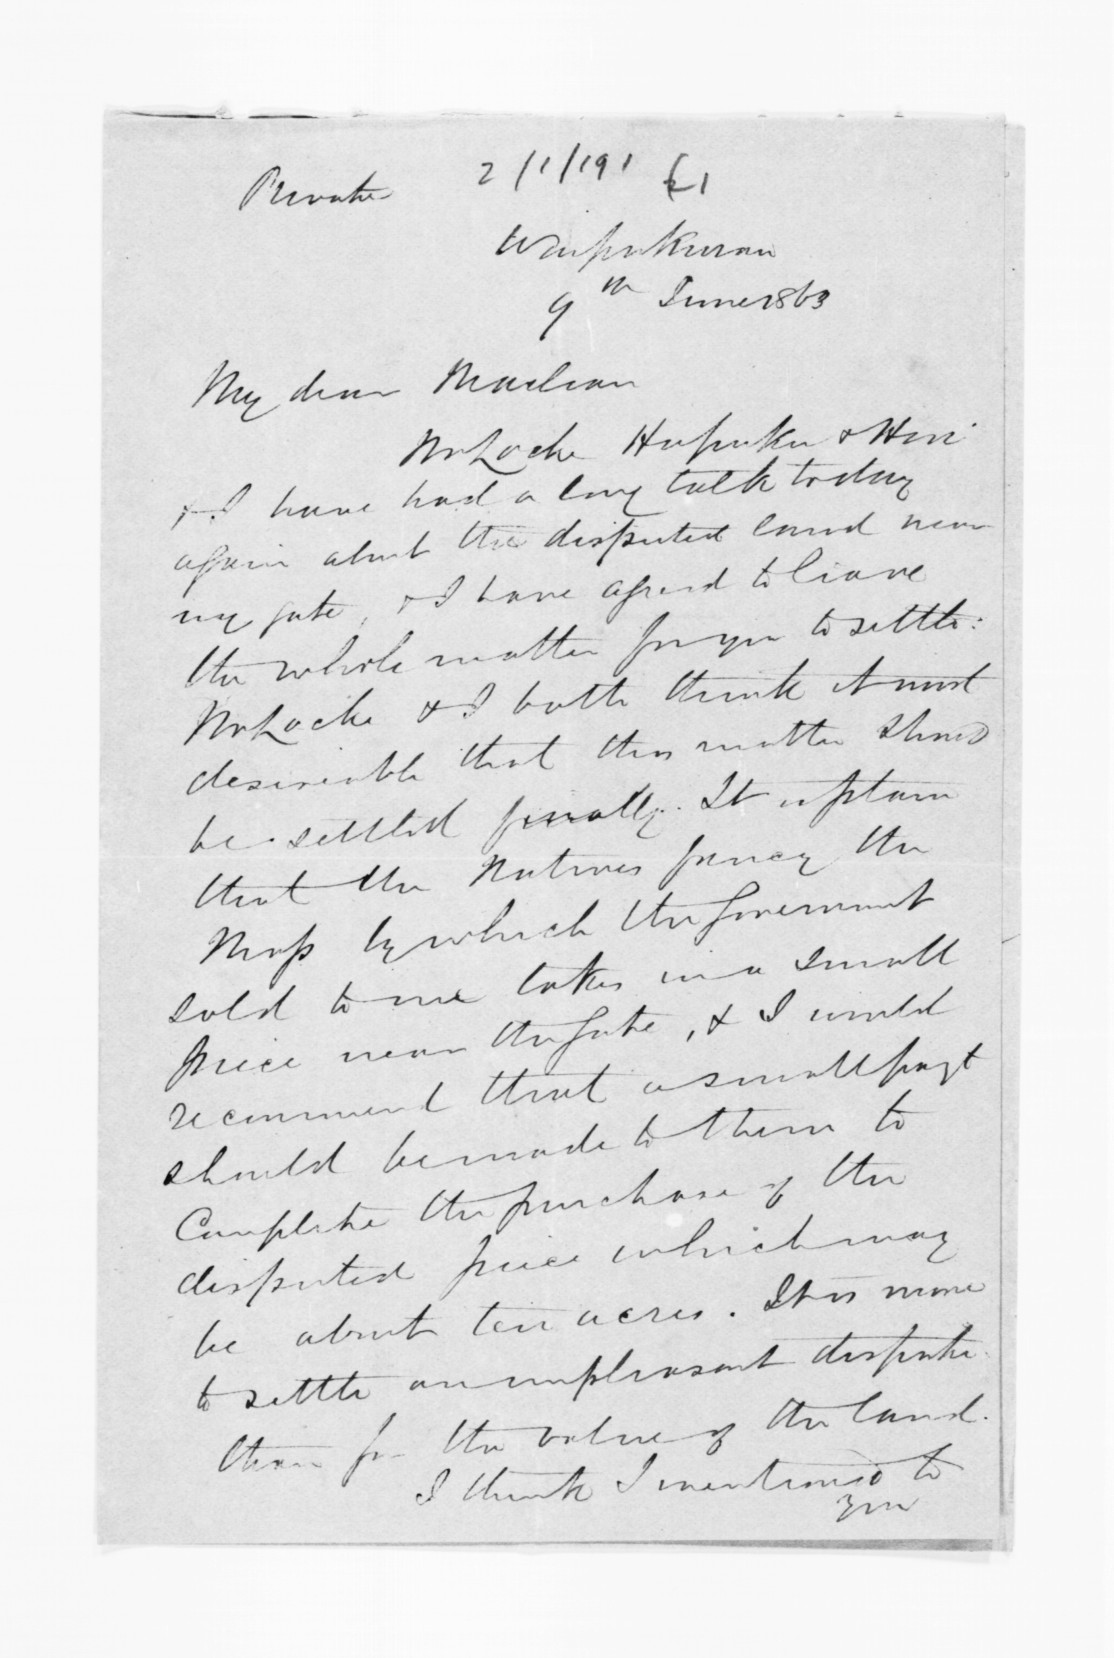 Private
2/1/191 £1
Waipukurau
9th June 1863
My dear Maclean
Mr Locke Hapuku & Hori
& I have had a long talk today
again about the disputed land near
my gate, & I have agreed to leave
the whole matter for you to settle:
Mr Locke & I both think it most
desirable that this matter should
be settled finally. It is plain
that the Natives fancy the
Map by which the Government
sold to me takes in a small
piece near the gate, & I would
recommend that a small payt
should be made to them to
Complete the purchase of the
disputed piece which may
be about ten acres. It is more
to settle an unpleasant dispute
than for the value of the land.
I think I mentioned to
you